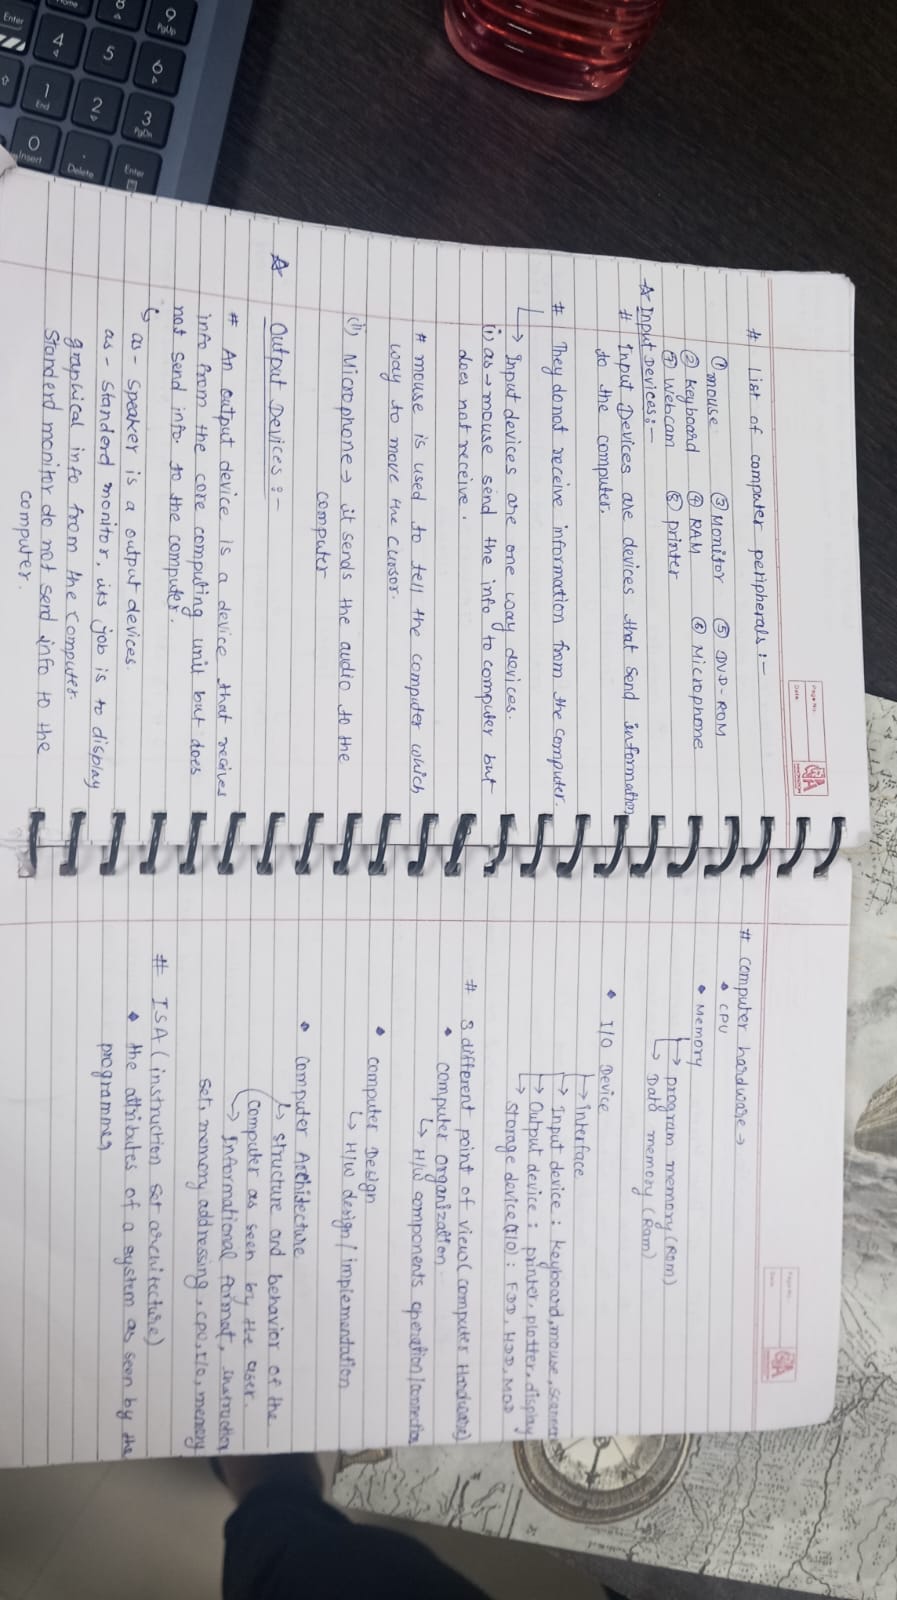 Page No.:
Date:
# List of computer peripherals :-
① mouse ③ Monitor ⑤ DVD-ROM
② keyboard ④ RAM ⑥ Microphone
⑦ Webcam ⑧ printer
☆ Input Devices :-
# Input Devices are devices that send information
to the computer.
# They do not receive information from the computer.
↳ Input devices are one way devices.
(i) as → mouse send the info to computer but
does not receive.
# mouse is used to tell the computer which
way to move the cursor.
(ii) Microphone → it sends the audio to the
computer
☆ Output Devices :-
# An output device is a device that recives
info from the core computing unit but does
not send info. to the computer.
↳ as - speaker is a output devices.
as - standerd monitor, its job is to display
graphical info from the computer.
Standerd monitor do not send info to the
computer.
Page No.:
Date:
# computer hardware →
• CPU
• Memory
→ program memory (Rom)
→ Data memory (Ram)
• I/O Device
→ interface
→ Input device : keyboard, mouse, scanner
→ Output device : printer, plotter, display
→ storage device (I/O) : FDD, HDD, MOD
# 3 different point of view (computer Hardware)
• computer organization
↳ H/W components operation/connection
• computer Design
↳ H/W design/ implementation
• computer Architecture
↳ structure and behavior of the
computer as seen by the user.
→ Informational format, instruction
set, memory addressing, CPU, I/O, memory
# ISA (instruction set architecture)
• the attributes of a system as seen by the
programmer
9 PgUp
6
3 PgDn
Enter
8
5
2
Delete
4
1 End
0 Insert
Enter